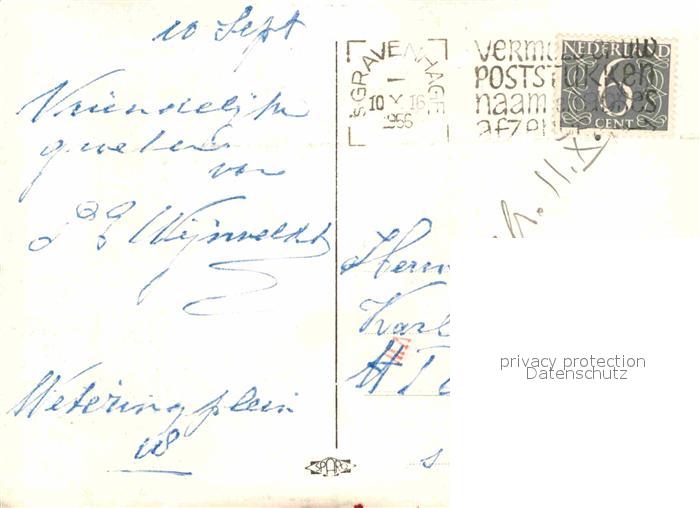 10 Sept
Vriendelijke
groeten
van
P G Wijnveldt
Weteringplein
'SGRAVENHAGE
10 X 16
1956
VERMELD UW
POSTSTUKKEN
naam adres
afzen
NEDERLAND
6
CENT
11.X.
Herrn
Karl
privacy protection
Datenschutz
SPARO